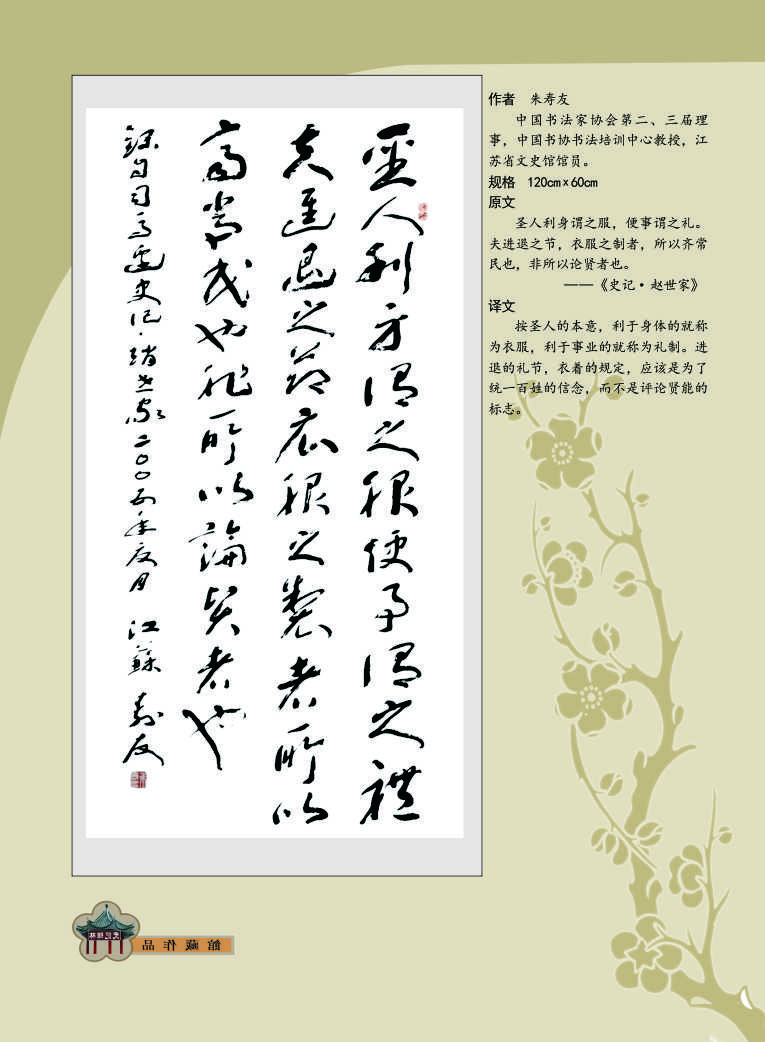 聖人利身謂之服便事謂之禮
夫進退之節衣服之製者所以
齊常民也非所以論賢者也
錄自司馬遷史記·趙世家二〇〇五年月 江蘇 壽友
作者 朱寿友
中国书法家协会第二、三届理
事，中国书协书法培训中心教授，江
苏省文史馆馆员。
规格 120cm×60cm
原文
圣人利身谓之服，便事谓之礼。
夫进退之节，衣服之制者，所以齐常
民也，非所以论贤者也。
——《史记·赵世家》
译文
按圣人的本意，利于身体的就称
为衣服，利于事业的就称为礼制。进
退的礼节，衣着的规定，应该是为了
统一百姓的信念，而不是评论贤能的
标志。
館藏作品